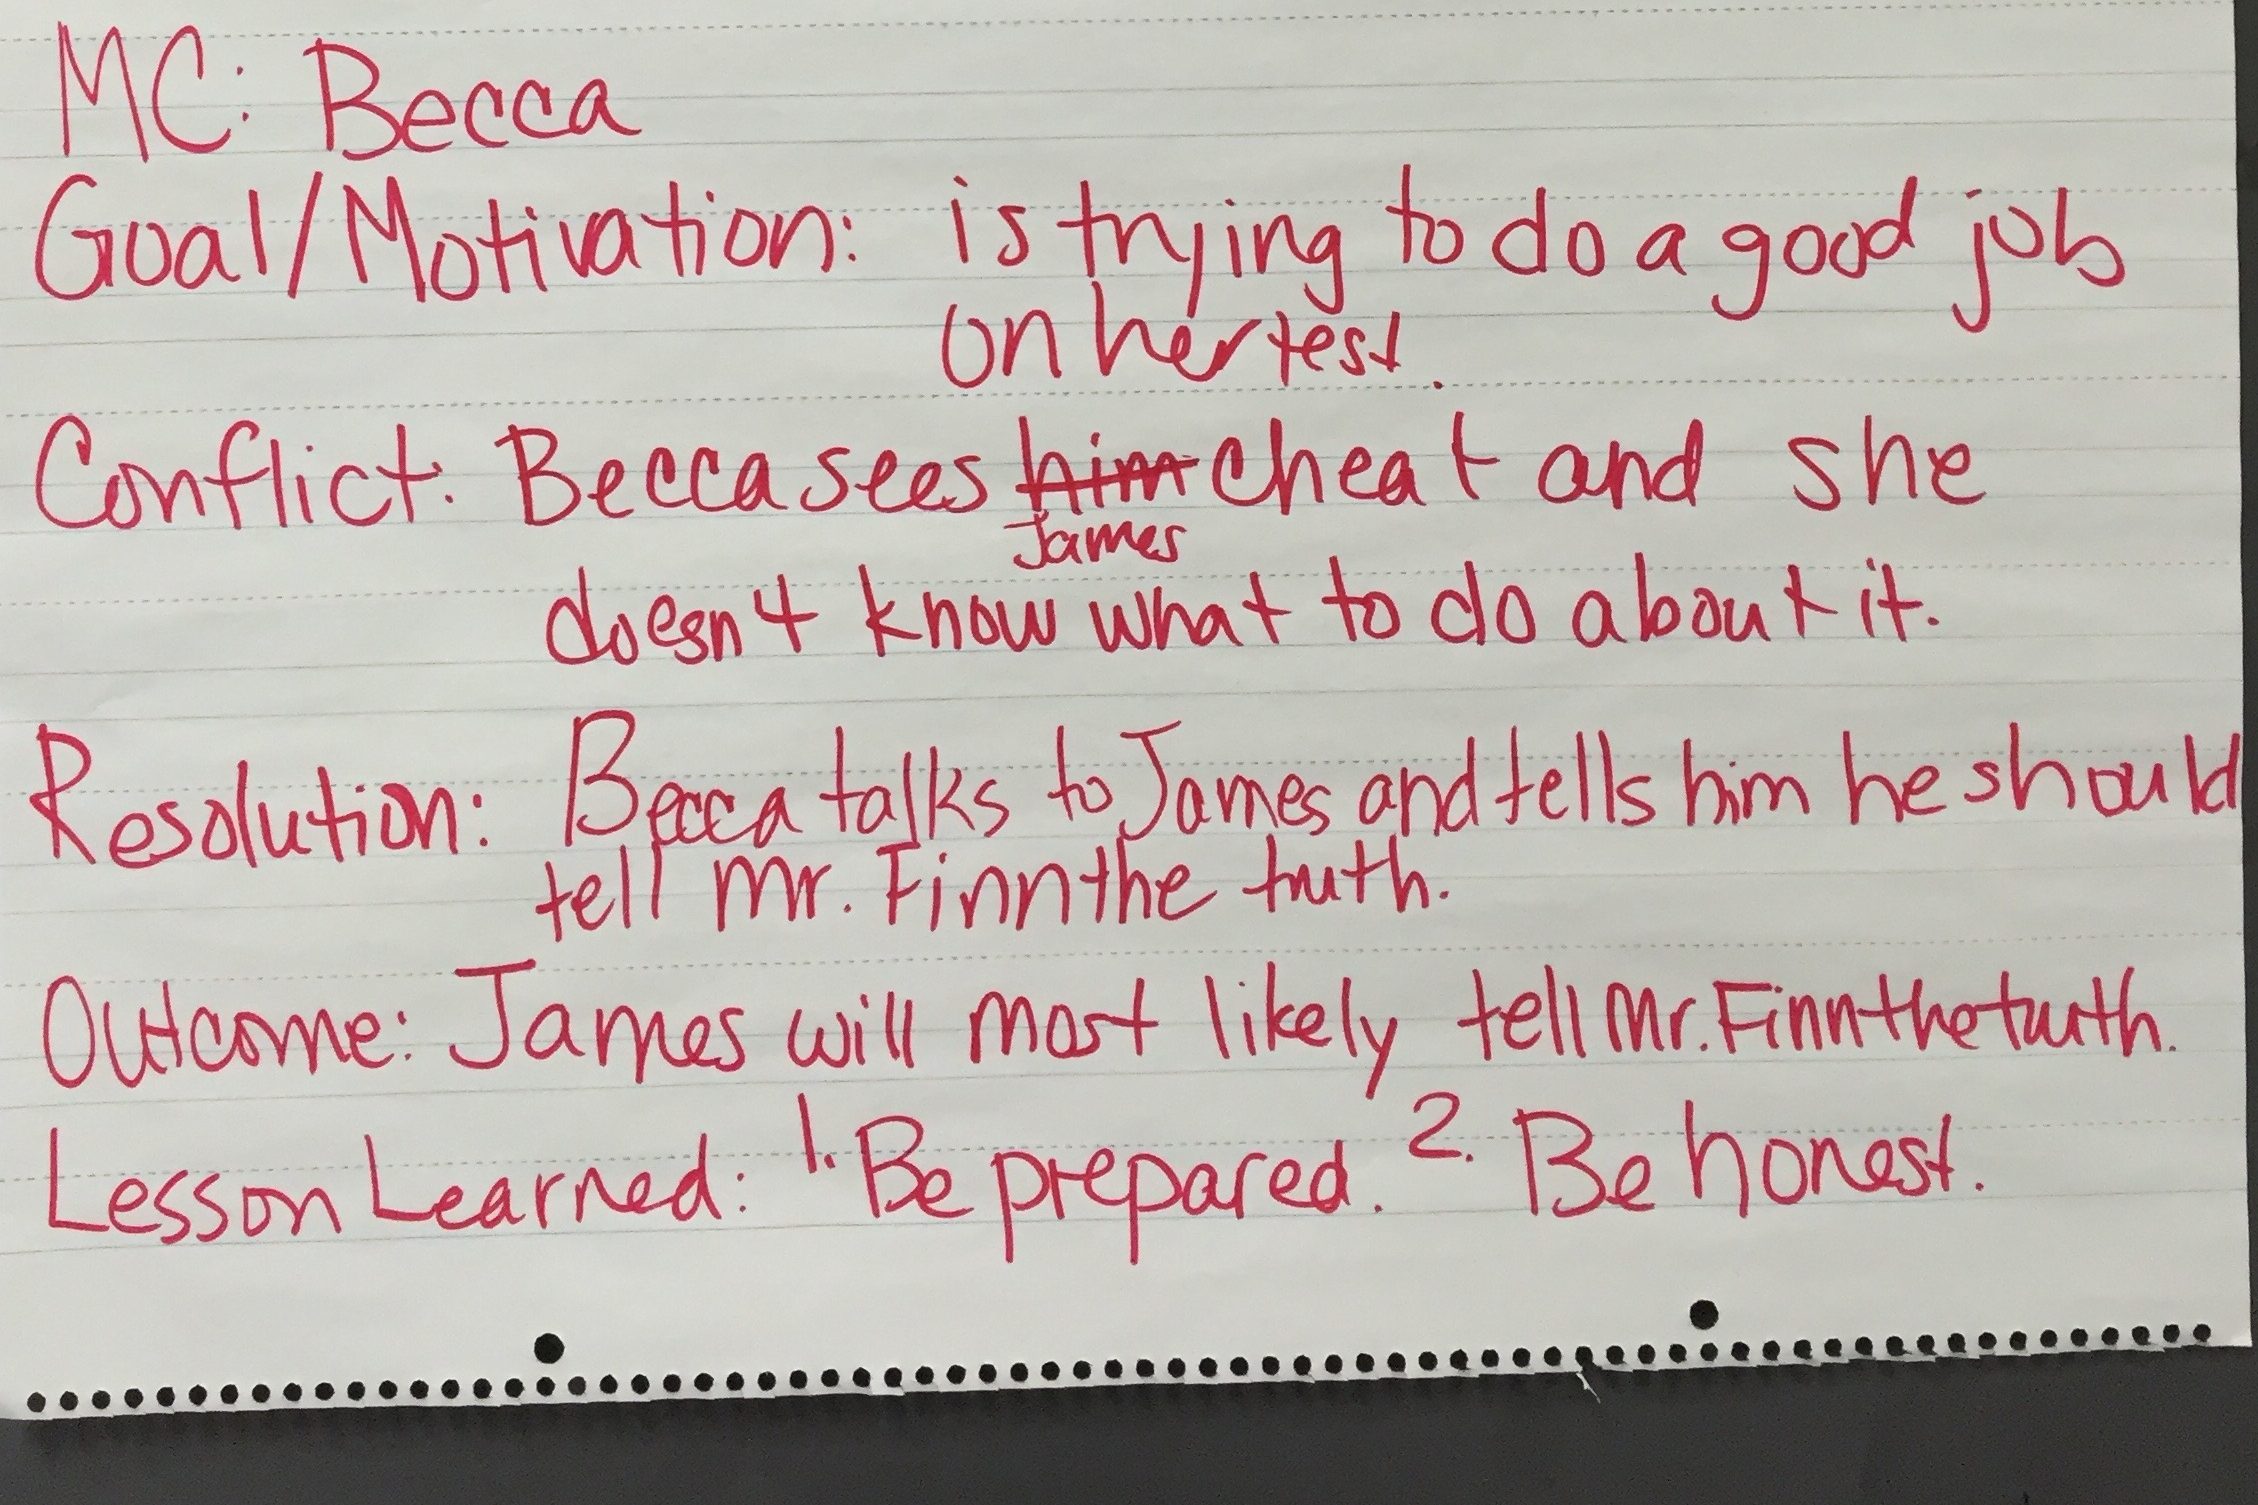 MC: Becca
Goal/Motivation: is trying to do a good job
on her test.
Conflict: Becca sees him cheat and she
James
doesn't know what to do about it.
Resolution: Becca talks to James and tells him he should
tell Mr. Finn the truth.
Outcome: James will most likely tell Mr. Finn the truth.
Lesson Learned: 1. Be prepared. 2. Be honest.